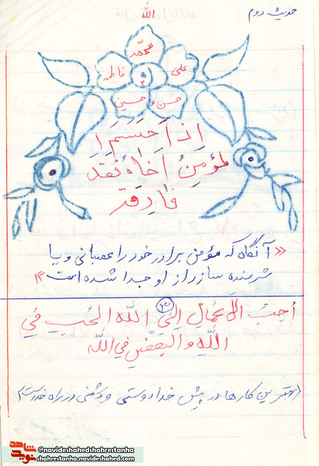 الله
حدیث دوم
محمد
علی
فاطمه
حسن و حسین
إذا حْتَشَمَ ا
لمؤمِنُ أخاهُ فَقَد
فارقه
«آنگاه که مؤمن برادر خود را عصبانی و یا
شرمنده سازد از او جدا شده است»
(۳)
اُحِبُّ الاَعمالِ اِلَیَ اللهَ الحُب فی
اللهِ و البُغضْ فی الله
«بهترین کارها در پیش خدا دوستی و دشمنی در راه خداست»
@navideshahedshahrestanha
shahrestanha.navideshahed.com